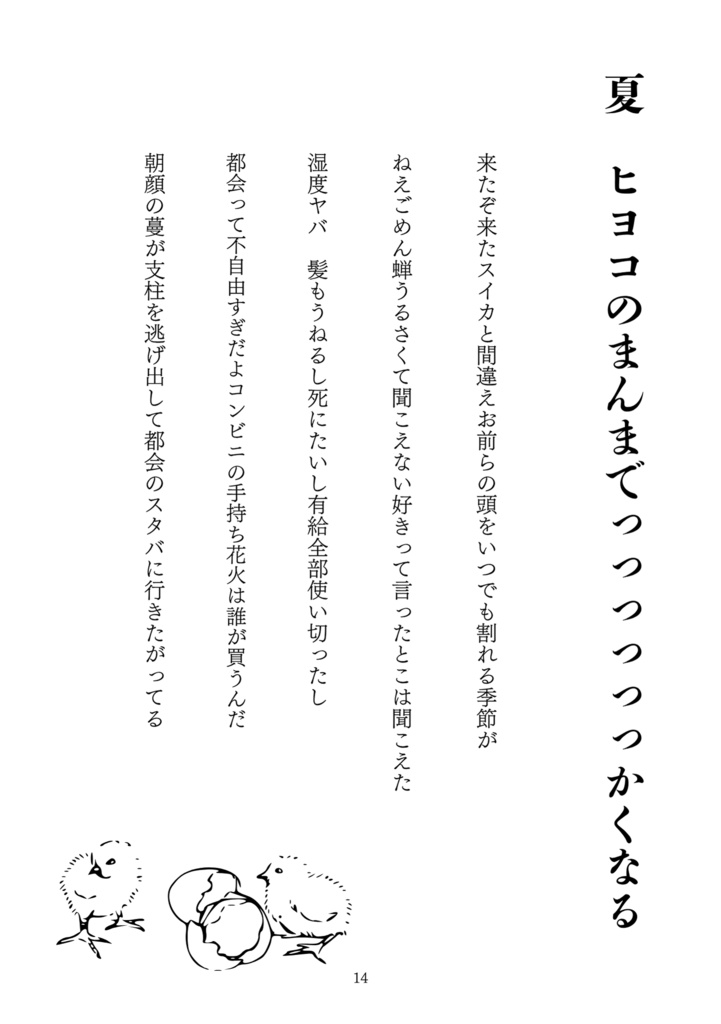 夏　ヒヨコのまんまでっっっっっっかくなる
来たぞ来たスイカと間違えお前らの頭をいつでも割れる季節が
ねえごめん蝉うるさくて聞こえない好きって言ったとこは聞こえた
湿度ヤバ　髪もうねるし死にたいし有給全部使い切ったし
都会って不自由すぎだよコンビニの手持ち花火は誰が買うんだ
朝顔の蔓が支柱を逃げ出して都会のスタバに行きたがってる
14